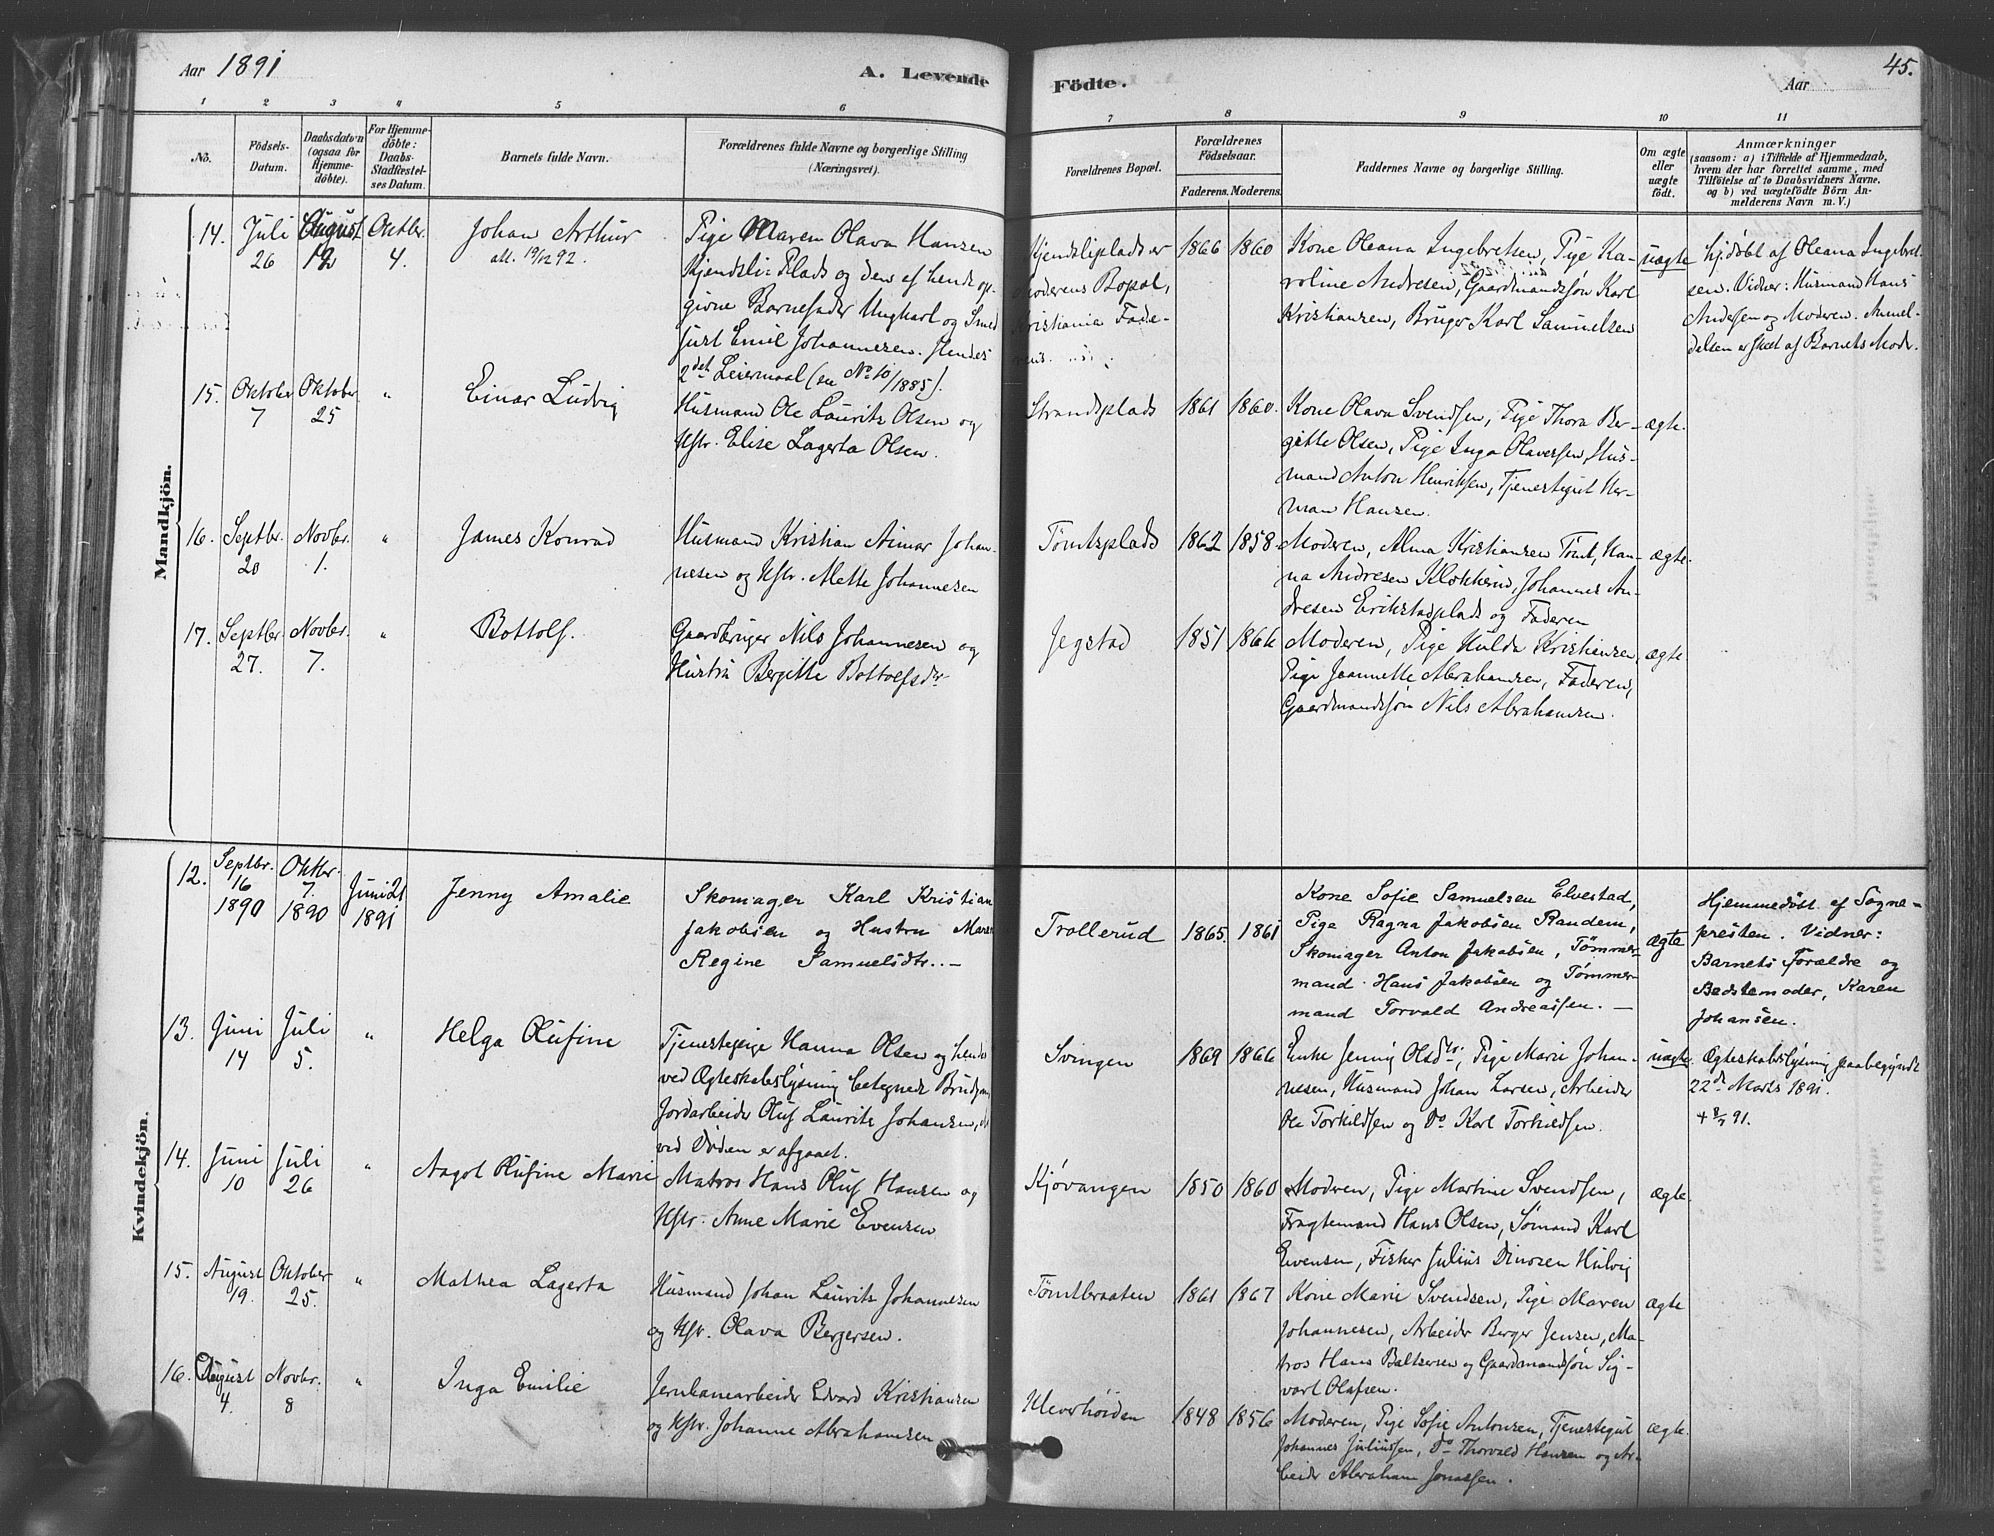 Aar 1891
A. Levende
Födte.
Aar
45.
1 2 3 4 5 6 7 8 9 10 11
No.
Födsels-
Datum.
Daabsdatum
(ogsaa for
Hjemme-
döbte).
For Hjemme-
döbte:
Daabs-
Stadfæstel-
ses Datum.
Barnets fulde Navn.
Forældrenes fulde Navne og borgerlige Stilling
(Næringsvei).
Forældrenes Bopæl.
Forældrenes
Födselsaar.
Faderens. Moderens.
Faddernes Navne og borgerlige Stilling.
Om ægte
eller
uægte
födt.
Anmærkninger
(saasom: a) i Tilfælde af Hjemmedaab,
hvem der har forrettet samme, med
Tilföielse af to Daabsvidners Navne.
og b) ved uægtefödte Börn An-
melderens Navn m. V.)
Mandkjön.
14.
Juli
26
August
Oktbr.
4.
Johan Arthur
att. 19/12 92.
Pige Maren Olava Hansen
Kjendsli-Plads og den af hende op-
givne Barnefader Ungkarl og Smed
Just Emil Johannesen. Hendes
2det Leiermaal (se No 10/1885).
Kjendsliplads er
Moderens Bopæl,
Kristiania Fade-
rens.
1866 1860
Kone Oleana Ingebretsen, Pige Ka-
roline Andresen, Gaardmandssøn Karl
Kristiansen, Bruger Karl Samuelsen
uægte
hj.døbt af Oleana Ingebret-
sen. Vidner: Husmand Hans
Andersen og Moderen. Anmel-
delsen er skeet af Barnets Moder.
15.
Oktober
7
Oktober
25
"
Einar Ludvig
Husmand Ole Laurits Olsen og
Hstr. Elise Lagerta Olsen.
Strandsplads
1861 1860.
Kone Olava Svendsen, Pige Thora Ber-
gitte Olsen, Pige Inga Olavessen, Hus-
mand Anton Henriksen, Tjenestegut Her-
man Hansen.
ægte.
16.
Septbr.
20
Novbr.
1.
"
James Konrad
Husmand Kristian Aimar Johan-
nesen og Hstr. Mette Johannesen
Tomtsplads
1862 1858.
Moderen, Alma Kristiansen Tomt, Han-
na Andresen Klokkerud, Johannes An-
dresen Erikstadplads og Faderen
ægte.
17.
Septbr.
27.
Novbr.
7.
"
Bottolf.
Gaardbruger Nils Johannesen og
Hustru Bergitte Bottolfsdr.
Jegstad
1851 1866
Moderen, Pige Hulda Kristiansen,
Pige Jeannette Abrahamsen, Faderen,
Gaardmandssøn Nils Abrahamsen.
ægte
Kvindekjön.
12.
Septbr.
16
1890
Oktbr.
7.
1890
Juni 21
1891
Jenny Amalie
Skomager Karl Kristian
Jakobsen og Hustru Maren
Regine Samuelsdtr. –
Trollerud
1865. 1861
Kone Sofie Samuelsen Elvestad,
Pige Ragna Jakobsen Randem,
Skomager Anton Jakobsen, Tømmer-
mand Hans Jakobsen og Tømmer-
mand Torvald Andreassen. –
ægte
Hjemmedøbt af Sogne-
presten. Vidner:
Barnets Forældre og
Bedstemoder, Karen
Johansen.
13.
Juni
14
Juli
5.
"
Helga Olufine
Tjenestepige Hanna Olsen og hendes
ved Ægteskabslysning betegnede Brudgom,
Jordarbeider Oluf Laurits Johansen,
ved Døden er afgaaet.
Svingen
1869 1866
Enke Jenny Olsdtr., Pige Marie Johan-
nesen, Husmand Johan Larsen, Arbeider
Ole Torkildsen og Do Karl Torkildsen.
uægte.
Ægteskabslysning paabegyndt
22de Marts 1891.
14.
Juni
10
Juli
26
"
Aagot Olufine Marie
Matros Hans Oluf Hansen og
Hstr. Anne Marie Evensen
Kjøvangen
1850 1860
Moderen, Pige Martine Svendsen,
Fragtemand Hans Olsen, Sømand Karl
Evensen, Fisker Julius Dinosen Hulvig
ægte.
15.
August
19.
Oktober
25.
"
Mathea Lagerta
Husmand Johan Laurits Johannesen
og Hstr. Olava Bergersen.
Tomtbraaten
1861 1867
Kone Marie Svendsen, Pige Maren
Johannesen, Arbeider Berger Jensen, Ma-
tros Hans Baltsersen og Gaardmandssøn Sig-
vart Olafsen.
ægte
16.
August
4.
Novbr.
8
"
Inga Emilie
Jernbanearbeider Edvard Kristiansen
og Hstr. Johanne Abrahamsen
1848 1856
Moderen, Pige Sofie Antonsen, Tjenestegut
Johannes Juliussen, Do Thorvald Hansen og Ar-
beider Abraham Jonassen.
ægte.